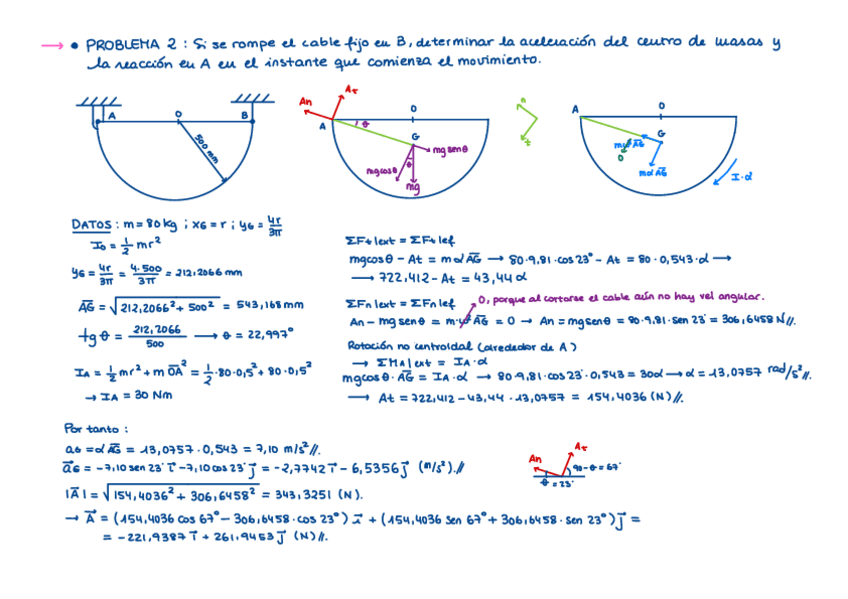 → • PROBLEMA 2 : Si se rompe el cable fijo en B, determinar la aceleración del centro de masas y
la reacción en A en el instante que comienza el movimiento.
A O B
500 mm
An Aτ
A θ O
G
mg senθ
mg cosθ θ
mg
n
t
A O
G
mω²AG
0
mα AG
I·α
DATOS : m = 80 kg ; xG = r ; yG = 4r/3π
Io = 1/2 mr²
yG = 4r/3π = 4·500/3π = 212,2066 mm
AG = √(212,2066² + 500²) = 543,168 mm
tg θ = 212,2066/500 → θ = 22,997°
IA = 1/2 mr² + m OA² = 1/2 · 80·0,5² + 80·0,5²
→ IA = 30 Nm
ΣFt]ext = ΣFt]ef
mg cosθ - At = mα AG → 80·9,81·cos 23° - At = 80·0,543·α →
→ 722,412 - At = 43,44 α
ΣFn]ext = ΣFn]ef
0, porque al cortarse el cable aún no hay vel angular.
An - mg senθ = m·ω² AG = 0 → An = mg senθ = 80·9,81·sen 23° = 306,6458 N//.
Rotación no centroidal (alrededor de A)
→ ΣMA]ext = IA·α
mg cosθ · AG = IA·α → 80·9,81·cos 23°·0,543 = 30α → α = 13,0757 rad/s²//.
→ At = 722,412 - 43,44 · 13,0757 = 154,4036 (N)//.
Por tanto :
aG = α AG = 13,0757 · 0,543 = 7,10 m/s²//.
aG = -7,10 sen 23° i - 7,10 cos 23° j = -2,7742 i - 6,5356 j (m/s²).//
|A| = √(154,4036² + 306,6458²) = 343,3251 (N).
→ A = (154,4036 cos 67° - 306,6458 · cos 23°) i + (154,4036 sen 67° + 306,6458 · sen 23°) j =
= -221,9387 i + 261,9453 j (N)//.
An Aτ
90-θ = 67°
θ = 23°